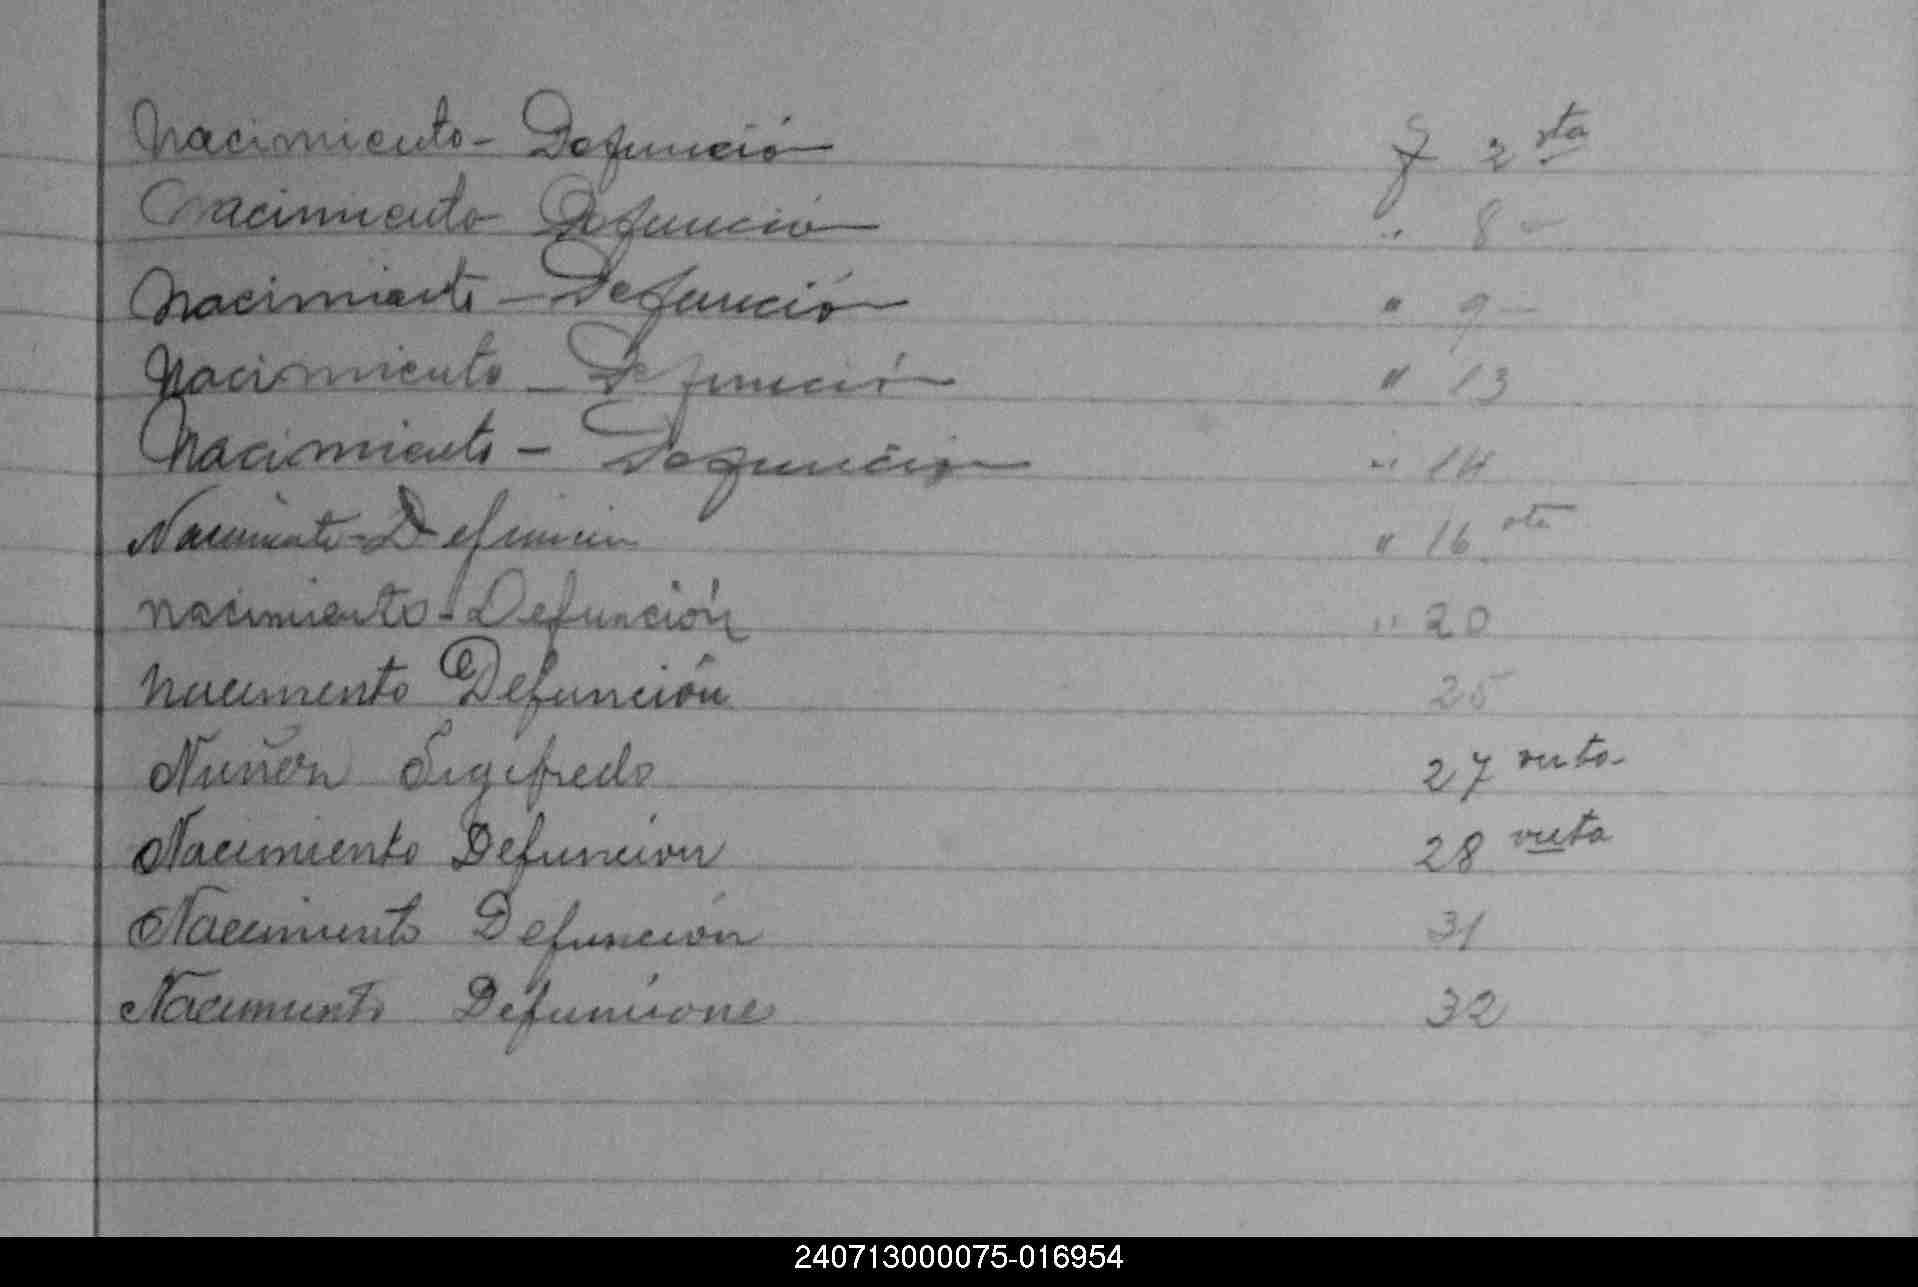 Nacimiento - Defunción f 2 vta
Nacimiento Defunción " 8 -
Nacimiento - Defunción " 9 -
Nacimiento - Defunción " 13
Nacimiento - Defunción " 14
Nacimiento - Defunción " 16 vta
Nacimiento - Defunción " 20
Nacimiento Defunción 25
Nuñez Sigifredo 27 vuta
Nacimiento Defuncion 28 vuta
Nacimiento Defunción 31
Nacimiento Defuncione 32
240713000075-016954